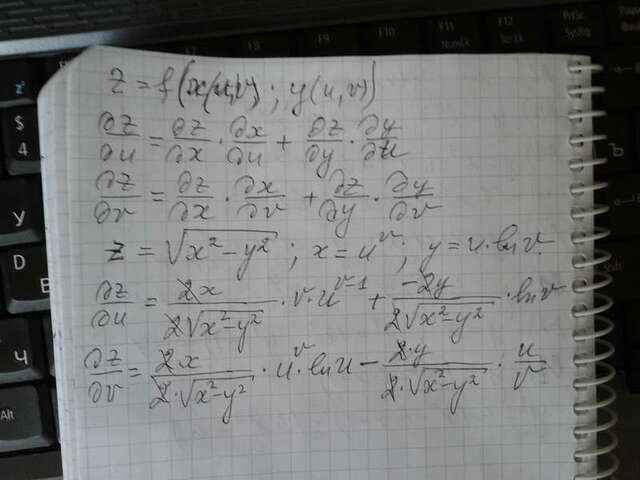 F7 F8 F9 F10 F11 NumLk F12 ScrLk PrtSc SysRq
z = f(x(u,v); y(u,v))
∂z/∂u = ∂z/∂x · ∂x/∂u + ∂z/∂y · ∂y/∂u
∂z/∂v = ∂z/∂x · ∂x/∂v + ∂z/∂y · ∂y/∂v
z = √(x²−y²) ; x = u^v ; y = u·ln v
∂z/∂u = 2x/(2√(x²−y²)) · v·u^(v−1) + −2y/(2√(x²−y²)) · ln v
∂z/∂v = 2·x/(2·√(x²−y²)) · u^v·ln u − 2·y/(2·√(x²−y²)) · u/v
$
4
У
D
В
Ч
Alt
Ъ